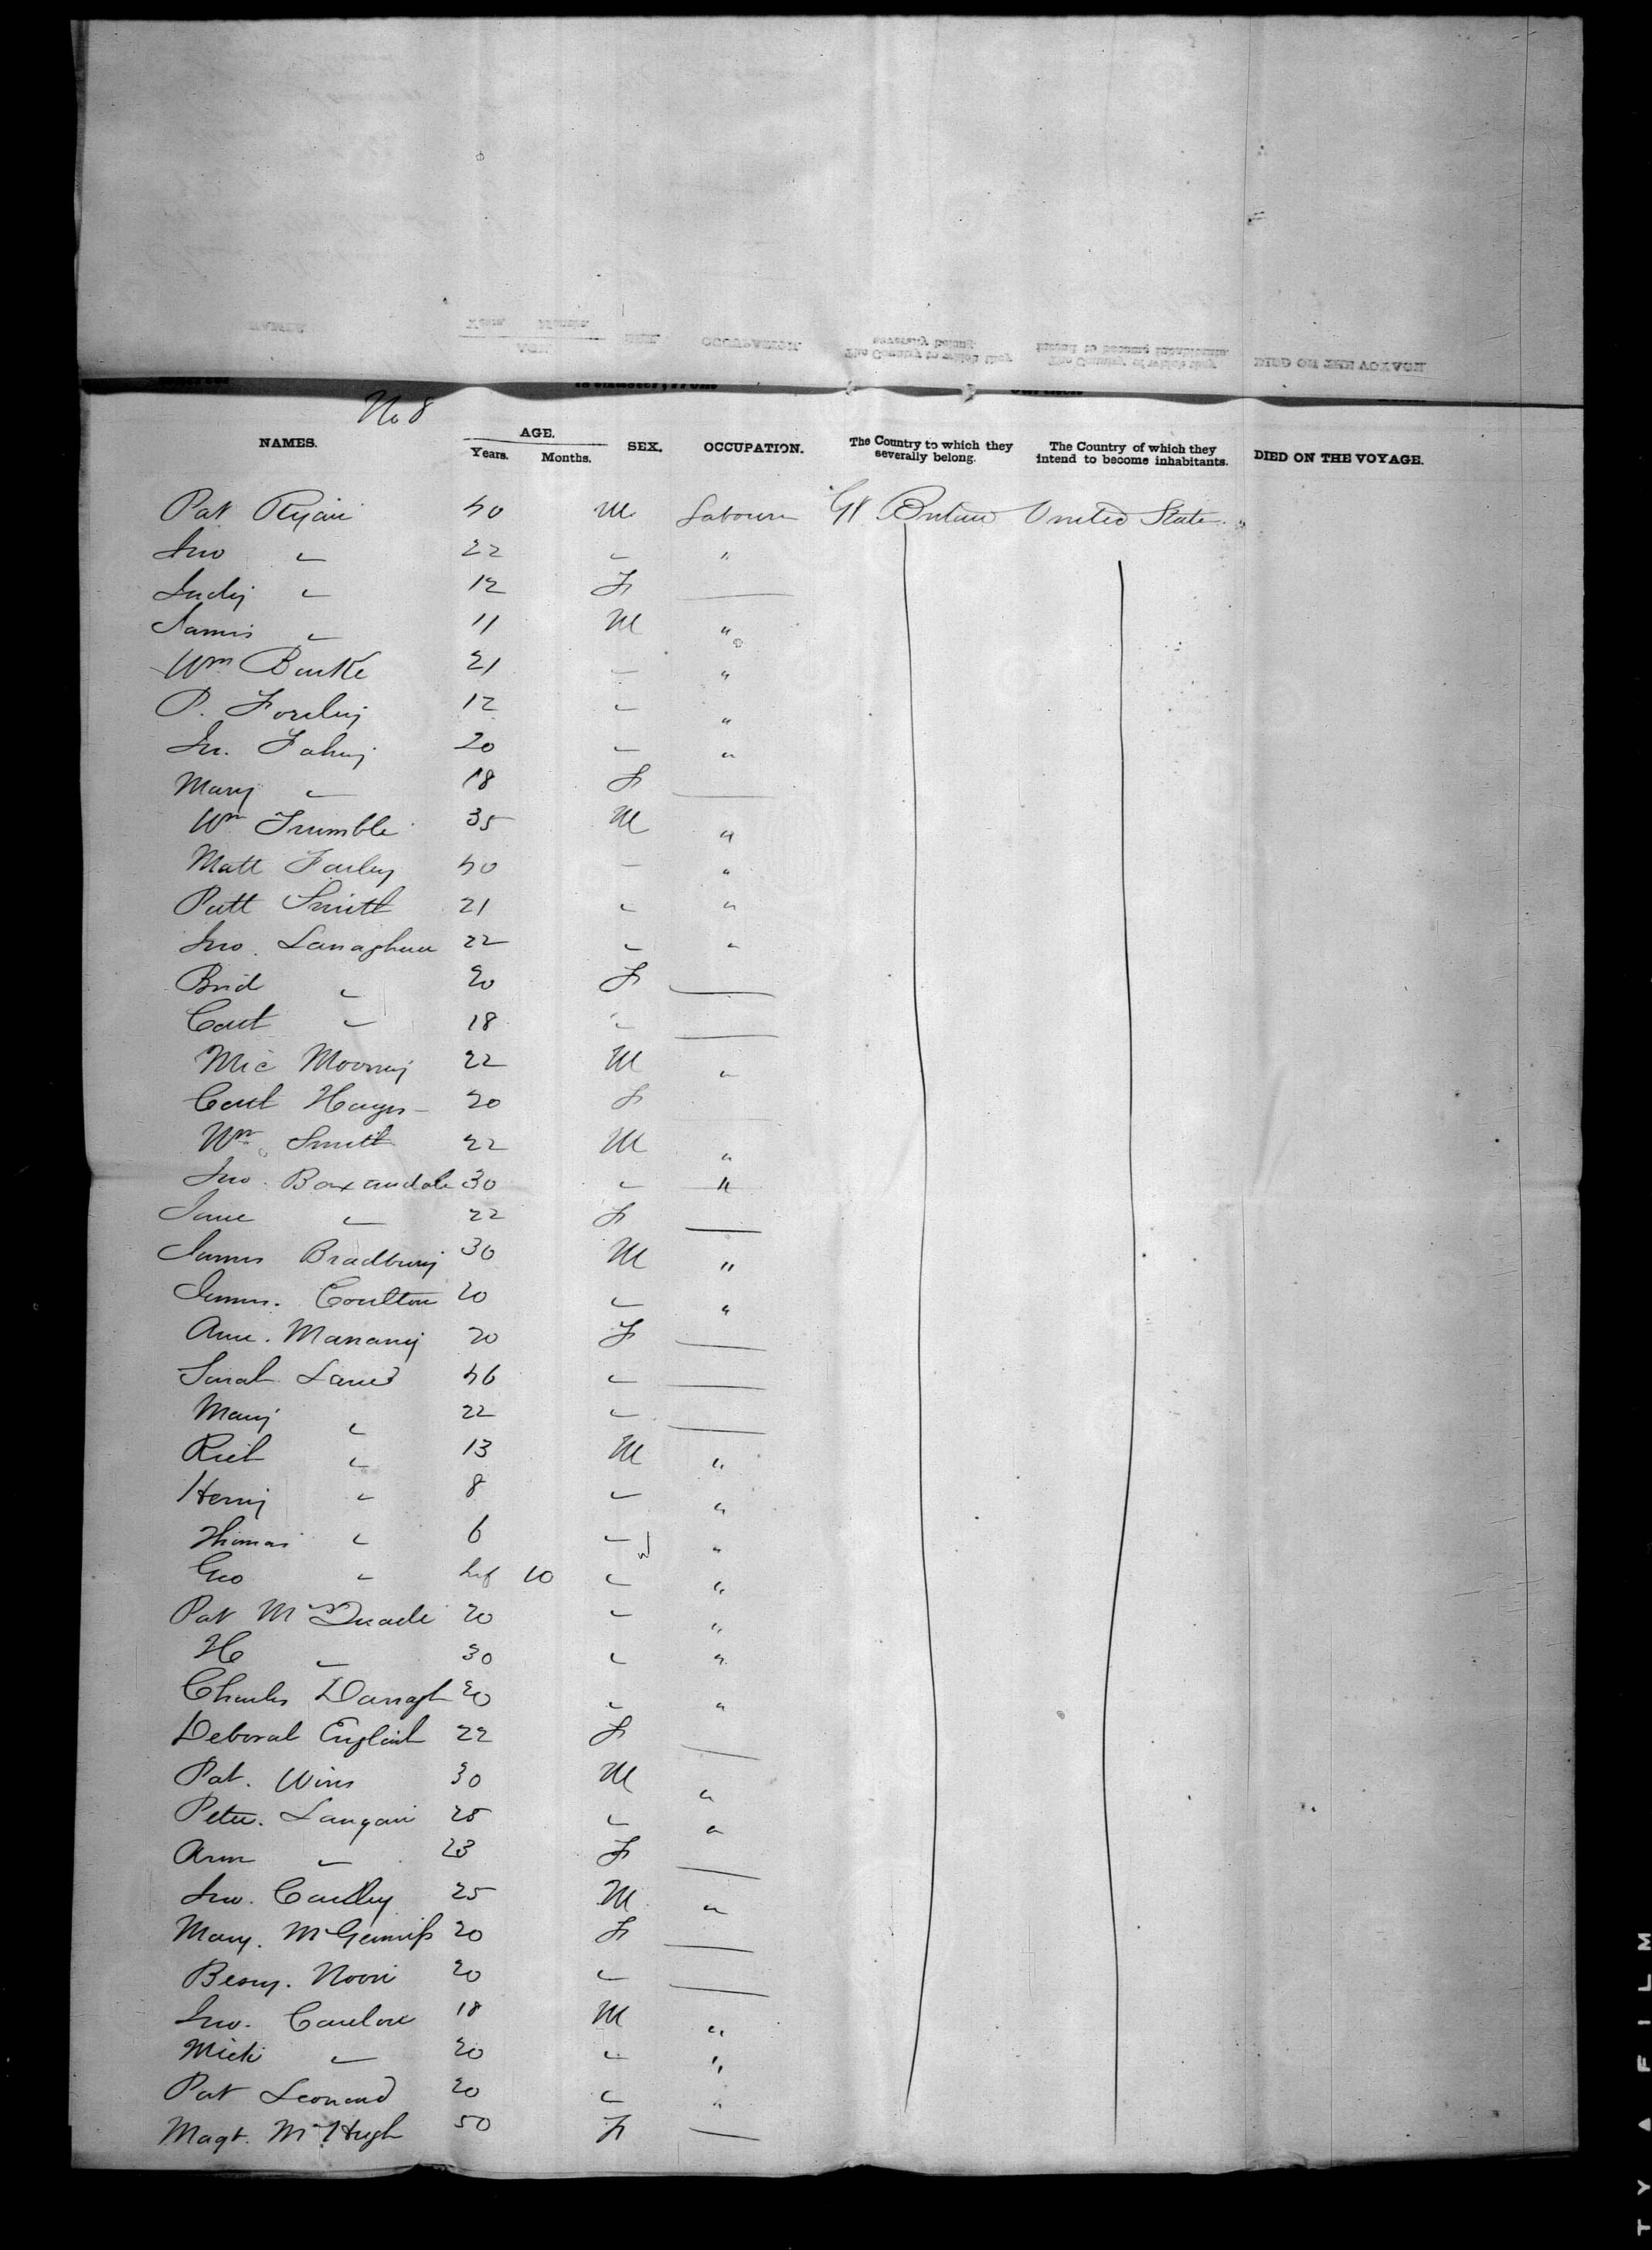 No 8
NAMES. AGE. Years. Months. SEX. OCCUPATION. The Country to which they severally belong. The Country of which they intend to become inhabitants. DIED ON THE VOYAGE.
Pat Ryan 40 M Labourer Gt Britain United States
Jno " 22 " "
Judy " 12 F —
James " 11 M "
Wm Burke 21 " "
P. 12 " "
Jn. Fahy 20 " "
Mary " 18 F —
Wm Trumble 35 M "
Matt Farley 40 " "
Patt Smith 21 " "
Jno. Lanaghan 22 " "
Brid " 20 F —
Cath " 18 " —
Mic Mooney 22 M "
Cath Hayes 20 F —
Wm Smith 22 M "
Jno. Baxendale 30 " "
Jane " 22 F —
James Bradbury 30 M "
James. Coulton 20 " "
Ann. Manany 20 F —
Sarah 46 " —
Mary " 22 " —
Rich " 13 M "
Henry " 8 " "
Thomas " 6 " "
Geo " Inf 10 " "
Pat McQuade 20 " "
H " 30 " "
Charles Darragh 20 " "
Deborah English 22 F —
Pat. Wins 30 M "
Peter. Langan 25 " "
Ann " 23 F —
Jno. 25 M "
Mary. McGenniss 20 F —
20 " —
Jno. 18 M "
Mick " 20 " "
Pat Leonard 20 " "
Magt. McHugh 50 F —